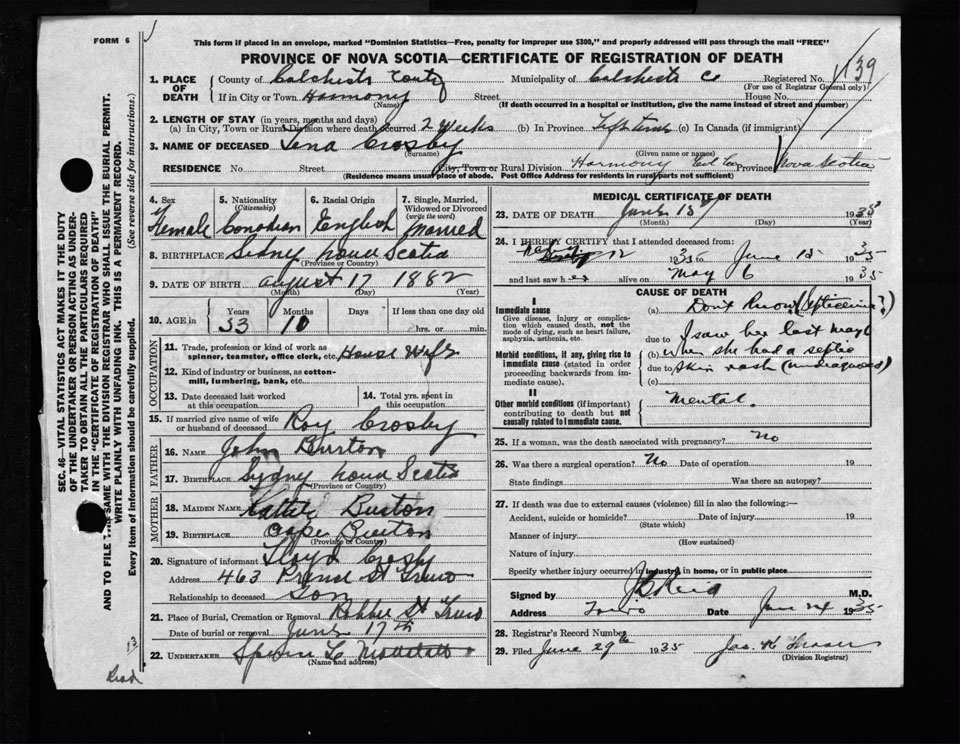 FORM 6
This form if placed in an envelope, marked "Dominion Statistics—Free, penalty for improper use $300," and properly addressed will pass through the mail "FREE"
PROVINCE OF NOVA SCOTIA—CERTIFICATE OF REGISTRATION OF DEATH
1. PLACE OF DEATH
County of Colchester County Municipality of Colchester Co Registered No. 139
(For use of Registrar General only)
If in City or Town Harmony Street House No.
(Name) (If death occurred in a hospital or institution, give the name instead of street and number)
2. LENGTH OF STAY (in years, months and days)
(a) In City, Town or Rural Division where death occurred 2 Weeks (b) In Province Life time (c) In Canada (if immigrant)
3. NAME OF DECEASED Lena Crosby
(Surname) (Given name or names)
RESIDENCE No. Street City, Town or Rural Division Harmony Col Co Province Nova Scotia
(Residence means usual place of abode. Post Office Address for residents in rural parts not sufficient)
4. Sex Female
5. Nationality (Citizenship) Canadian
6. Racial Origin English
7. Single, Married, Widowed or Divorced (write the word) Married
8. BIRTHPLACE Sidney Nova Scotia
(Province or Country)
9. DATE OF BIRTH August 17 1882
(Month) (Day) (Year)
10. AGE in Years Months Days If less than one day old
53 10 hrs. or min.
OCCUPATION
11. Trade, profession or kind of work as spinner, teamster, office clerk, etc. House Wife
12. Kind of industry or business, as cotton-mill, lumbering, bank, etc.
13. Date deceased last worked at this occupation
14. Total yrs. spent in this occupation
15. If married give name of wife or husband of deceased Roy Crosby
FATHER
16. NAME John Burton
17. BIRTHPLACE Sydny Nova Scotia
(Province or Country)
MOTHER
18. MAIDEN NAME Burton
19. BIRTHPLACE Cape Breton
(Province or Country)
20. Signature of informant Lloyd Crosby
Address 463 Prince St Truro
Relationship to deceased Son
21. Place of Burial, Cremation or Removal Robbie St Truro
Date of burial or removal June 17th
22. UNDERTAKER
(Name and address)
MEDICAL CERTIFICATE OF DEATH
23. DATE OF DEATH June 15 1935
(Month) (Day) (Year)
24. I HEREBY CERTIFY that I attended deceased from:
12 1935 to June 15 1935
and last saw her alive on May 6 1935
CAUSE OF DEATH
I
Immediate cause
Give disease, injury or complication which caused death, not the mode of dying, such as heart failure, asphyxia, asthenia, etc.
(a) Don't Know (Septicemia?)
due to I saw her last May 6
Morbid conditions, if any, giving rise to immediate cause (stated in order proceeding backwards from immediate cause).
(b) when she had a septic
due to skin rash (undiagnosed)
(c)
II
Other morbid conditions (if important) contributing to death but not causally related to immediate cause.
Mental.
25. If a woman, was the death associated with pregnancy? No
26. Was there a surgical operation? No Date of operation 19
State findings Was there an autopsy?
27. If death was due to external causes (violence) fill in also the following:—
Accident, suicide or homicide? Date of injury 19
(State which)
Manner of injury
(How sustained)
Nature of injury
Specify whether injury occurred in industry, in home, or in public place
Signed by Reid M.D.
Address Truro Date June 24 1935
28. Registrar's Record Number
29. Filed June 29th 1935 Jas. K Fraser
(Division Registrar)
SEC. 46—VITAL STATISTICS ACT MAKES IT THE DUTY
OF THE UNDERTAKER OR PERSON ACTING AS UNDER-
TAKER TO OBTAIN ALL THE PARTICULARS REQUIRED
IN THE "CERTIFICATE OF REGISTRATION OF DEATH"
AND TO FILE THE SAME WITH THE DIVISION REGISTRAR WHO SHALL ISSUE THE BURIAL PERMIT.
WRITE PLAINLY WITH UNFADING INK. THIS IS A PERMANENT RECORD.
Every item of information should be carefully supplied. (See reverse side for instructions.)